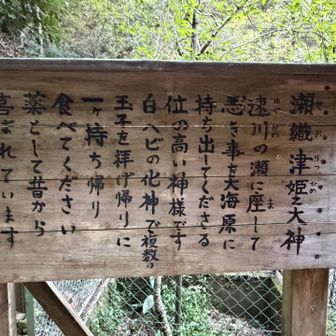 瀬織津姫之大神
速川の瀬に座して
悪き事を大海原に
持ち出してくださる
位の高い神様です
白ヘビの化神で複数の
玉子を拝げ帰りに
一ヶ持ち帰り
食べてください
薬として昔から
喜ばれています